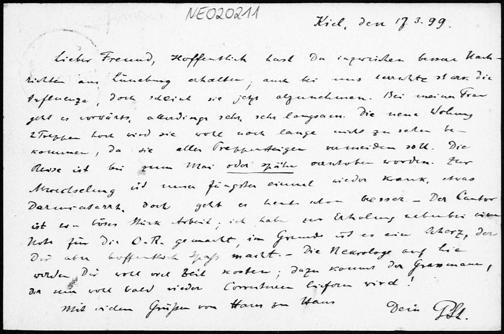 NE020211
Kiel, den 17.3.99.
Lieber Freund, Hoffentlich hast Du inzwischen bessere Nach-
richten aus Lüneburg erhalten, auch bei uns herrscht stark die
Influenza, doch scheint sie jetzt abzunehmen. Bei meiner Frau
geht es vorwärts, allerdings sehr, sehr langsam. Die neue Wohnung
2 Treppen hoch wird sie wohl noch lange nicht zu sehen be-
kommen, da sie alles Treppensteigen vermeiden soll. Die
Reise ist bis zum Mai oder später verschoben worden. Zur
ist unser Jüngster einmal wieder krank, etwas
Darmkatarrh, doch geht es heute schon besser – Der Cantor
ist ein böses Stück Arbeit; ich habe zur Erholung nebenbei eine
Note für die C.R. gemacht, im Grunde ist es ein Scherz, der
Dir aber hoffentlich Spaß macht – Die Nekrologe auf Lie
werden Dir wohl viel Zeit kosten; dazu kommt der Grassmann,
der nun wohl bald wieder Correcturen liefern wird!
Mit vielen Grüßen von Haus zu Haus
Dein